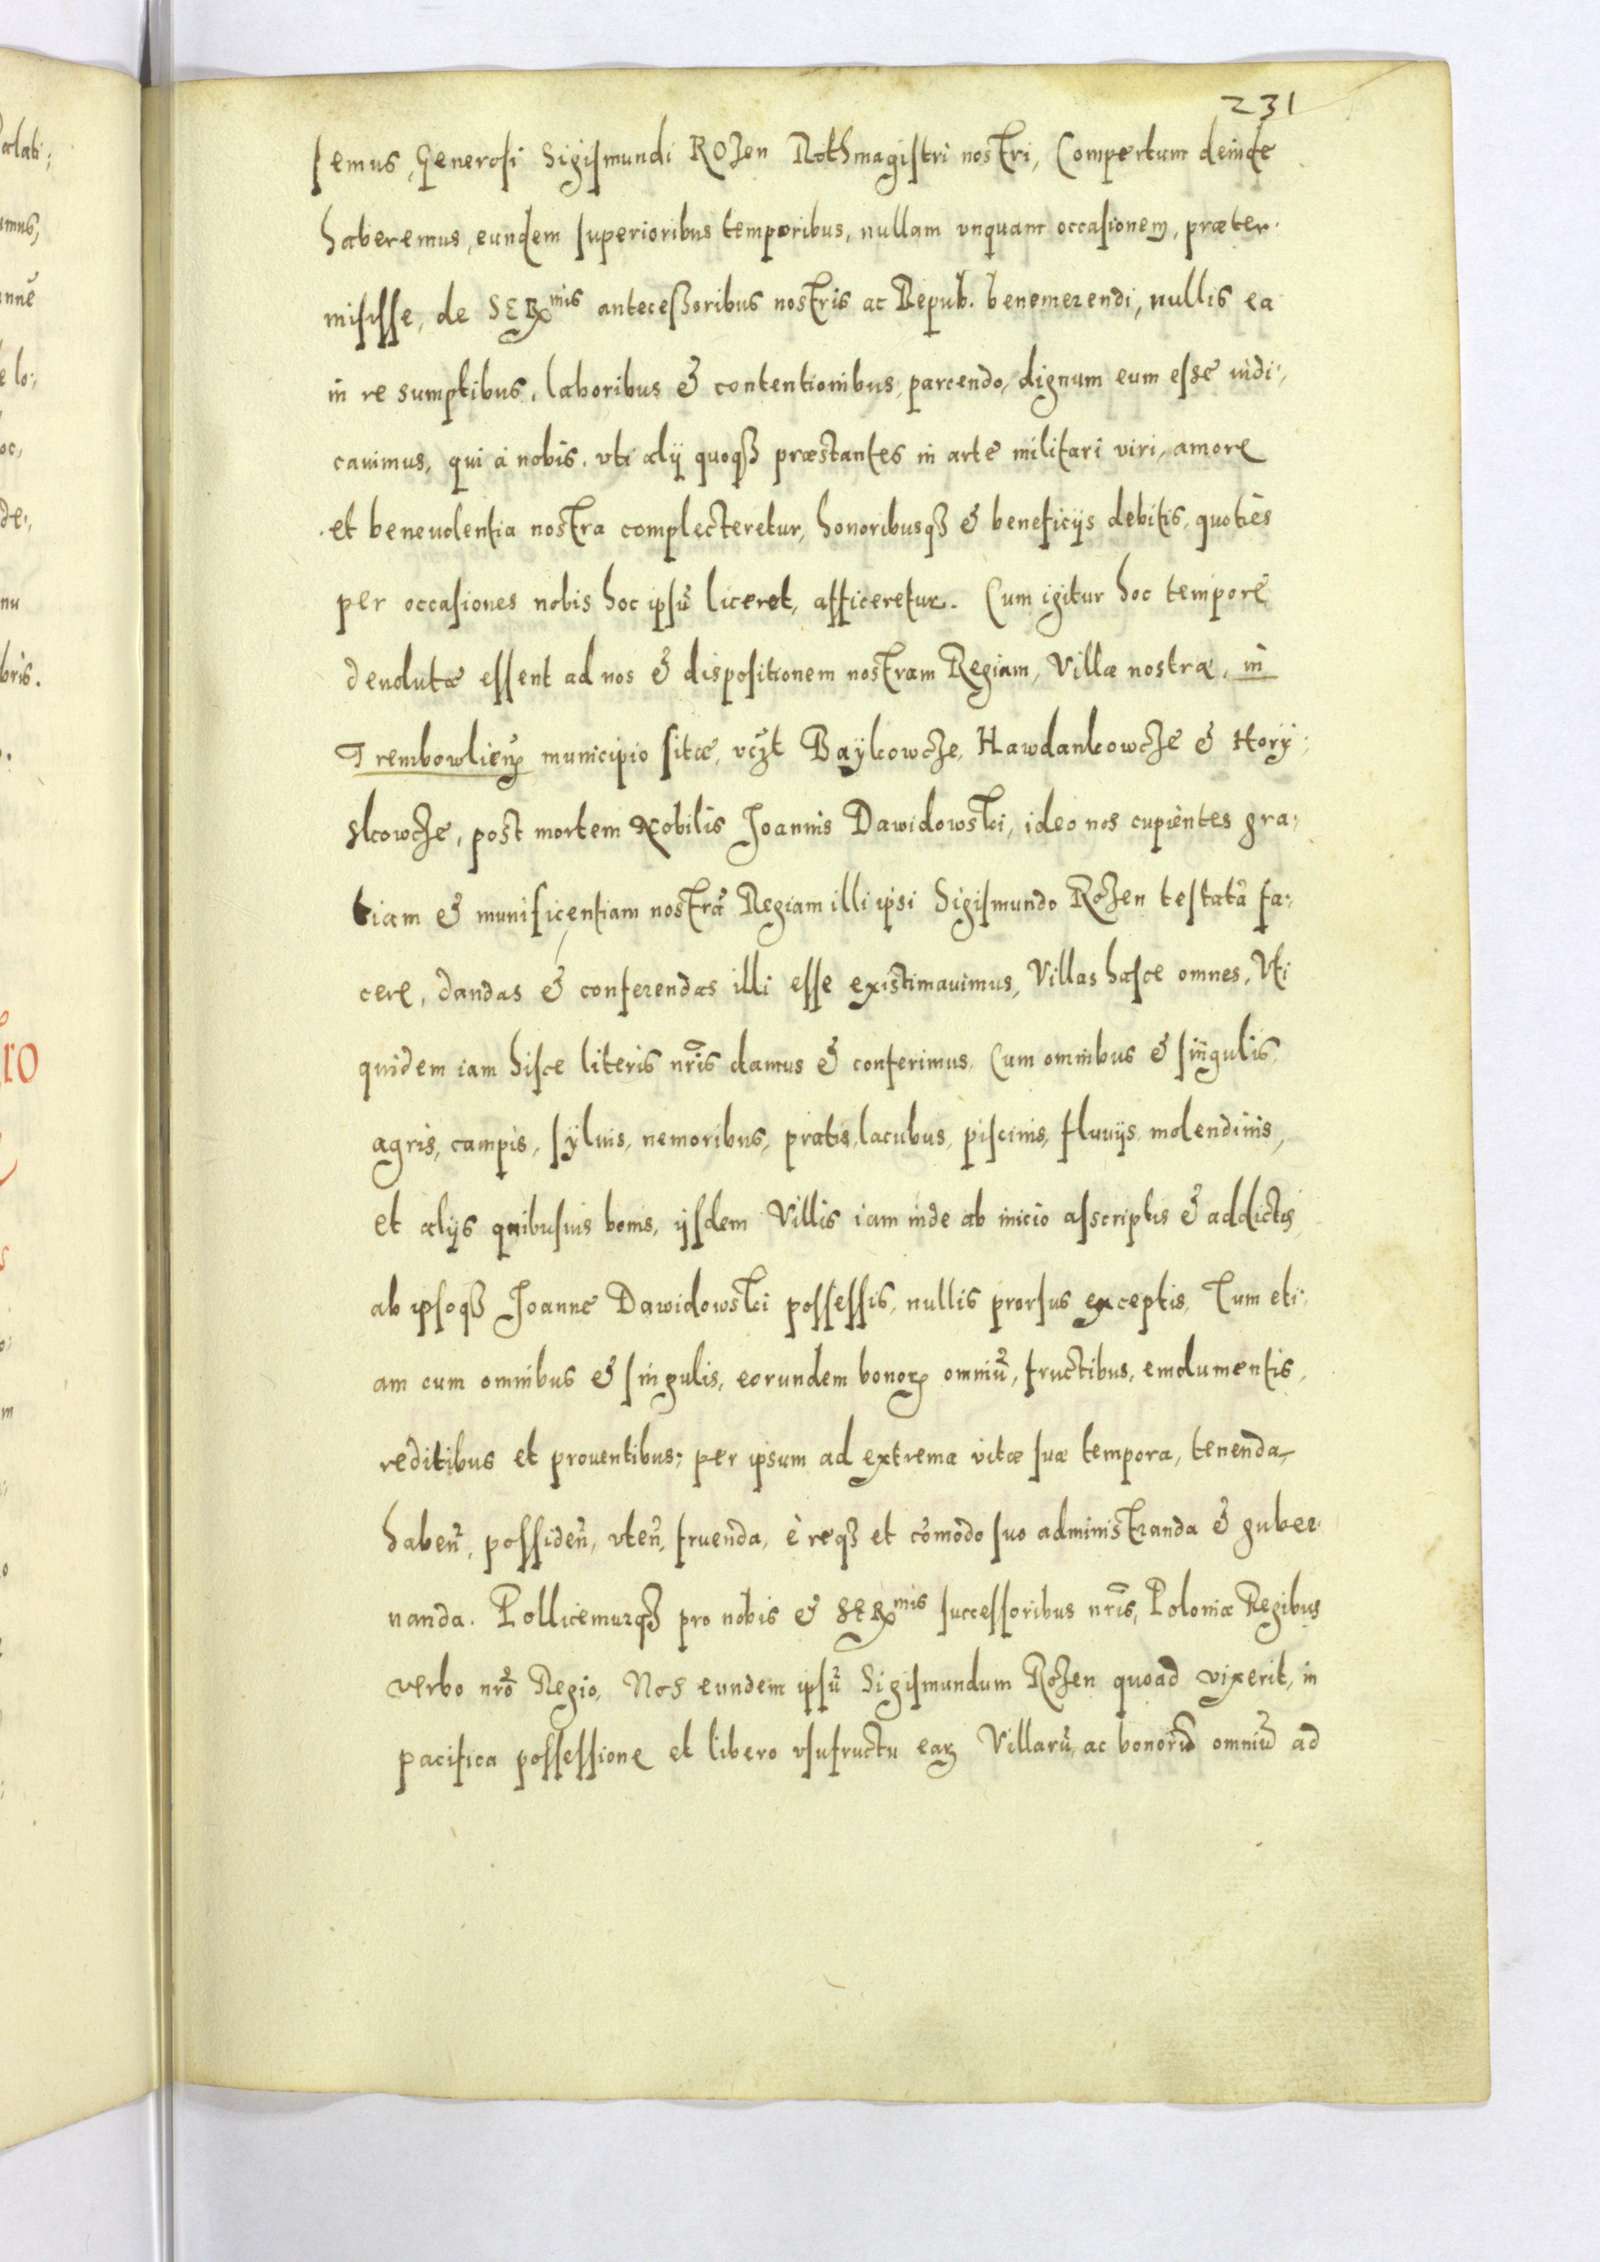 231
semus, Generosi Sigismundi ROZen Rothmagistri nostri, Compertum deinde
haberemus, eundem superioribus temporibus, nullam vnquam occasionem, præter-
misisse, de SER^mis antecessoribus nostris ac Repub. benemerendi, nullis ea
in re sumptibus, laboribus & contentionibus parcendo, dignum eum esse iudi-,
cauimus, qui à nobis, vti alij quoqȝ præstantes in arte militari viri, amore
et beneuolentia nostra complecteretur, honoribusqȝ & beneficijs debitis, quoties
per occasiones nobis hoc ipsũ liceret, afficeretur. Cum igitur hoc tempore
deuolutæ essent ad nos & dispositionem nostram Regiam, Villæ nostræ, in
Trembowlieñ municipio sitæ, vczt Baÿkowcze, Hawdankowcze & Horÿ-
slcowcze, post mortem Nobilis Joannis Dawidowski, ideo nos cupientes gra-,
tiam & munificentiam nostrã Regiam illi ipsi Sigismundo Rozen testatã fa-,
cere, dandas & conferendas illi esse existimauimus, Villas hasce omnes, Vti
quidem iam hisce literis nr̃is damus & conferimus, Cum omnibus & singulis,
agris, campis, sÿluis, nemoribus, pratis, lacubus, piscinis, fluuijs, molendinis,
et alijs quibusuis bonis, ijsdem Villis iam inde ab inicio asscriptis & addictis
ab ipsoqȝ Joanne Dawidowski possessis, nullis prorsus exceptis, Tum eti-,
am cum omnibus & singulis, eorundem bonoꝝ omniũ, fructibus, emolumentis,
reditibus et prouentibus; per ipsum ad extrema vitæ suæ tempora, tenenda,
habeñ, possideñ, vteñ, fruenda, è reqȝ et cõmodo suo administranda & guber-
nanda. Pollicemurqȝ pro nobis & SER^mis successoribus nr̃is, Poloniæ Regibus
verbo nr̃o Regio, Nos eundem ipsũ Sigismundum Rozen quoad vixerit, in
pacifica possessione et libero vsufructu eaꝝ Villarũ, ac bonorũ omniũ ad